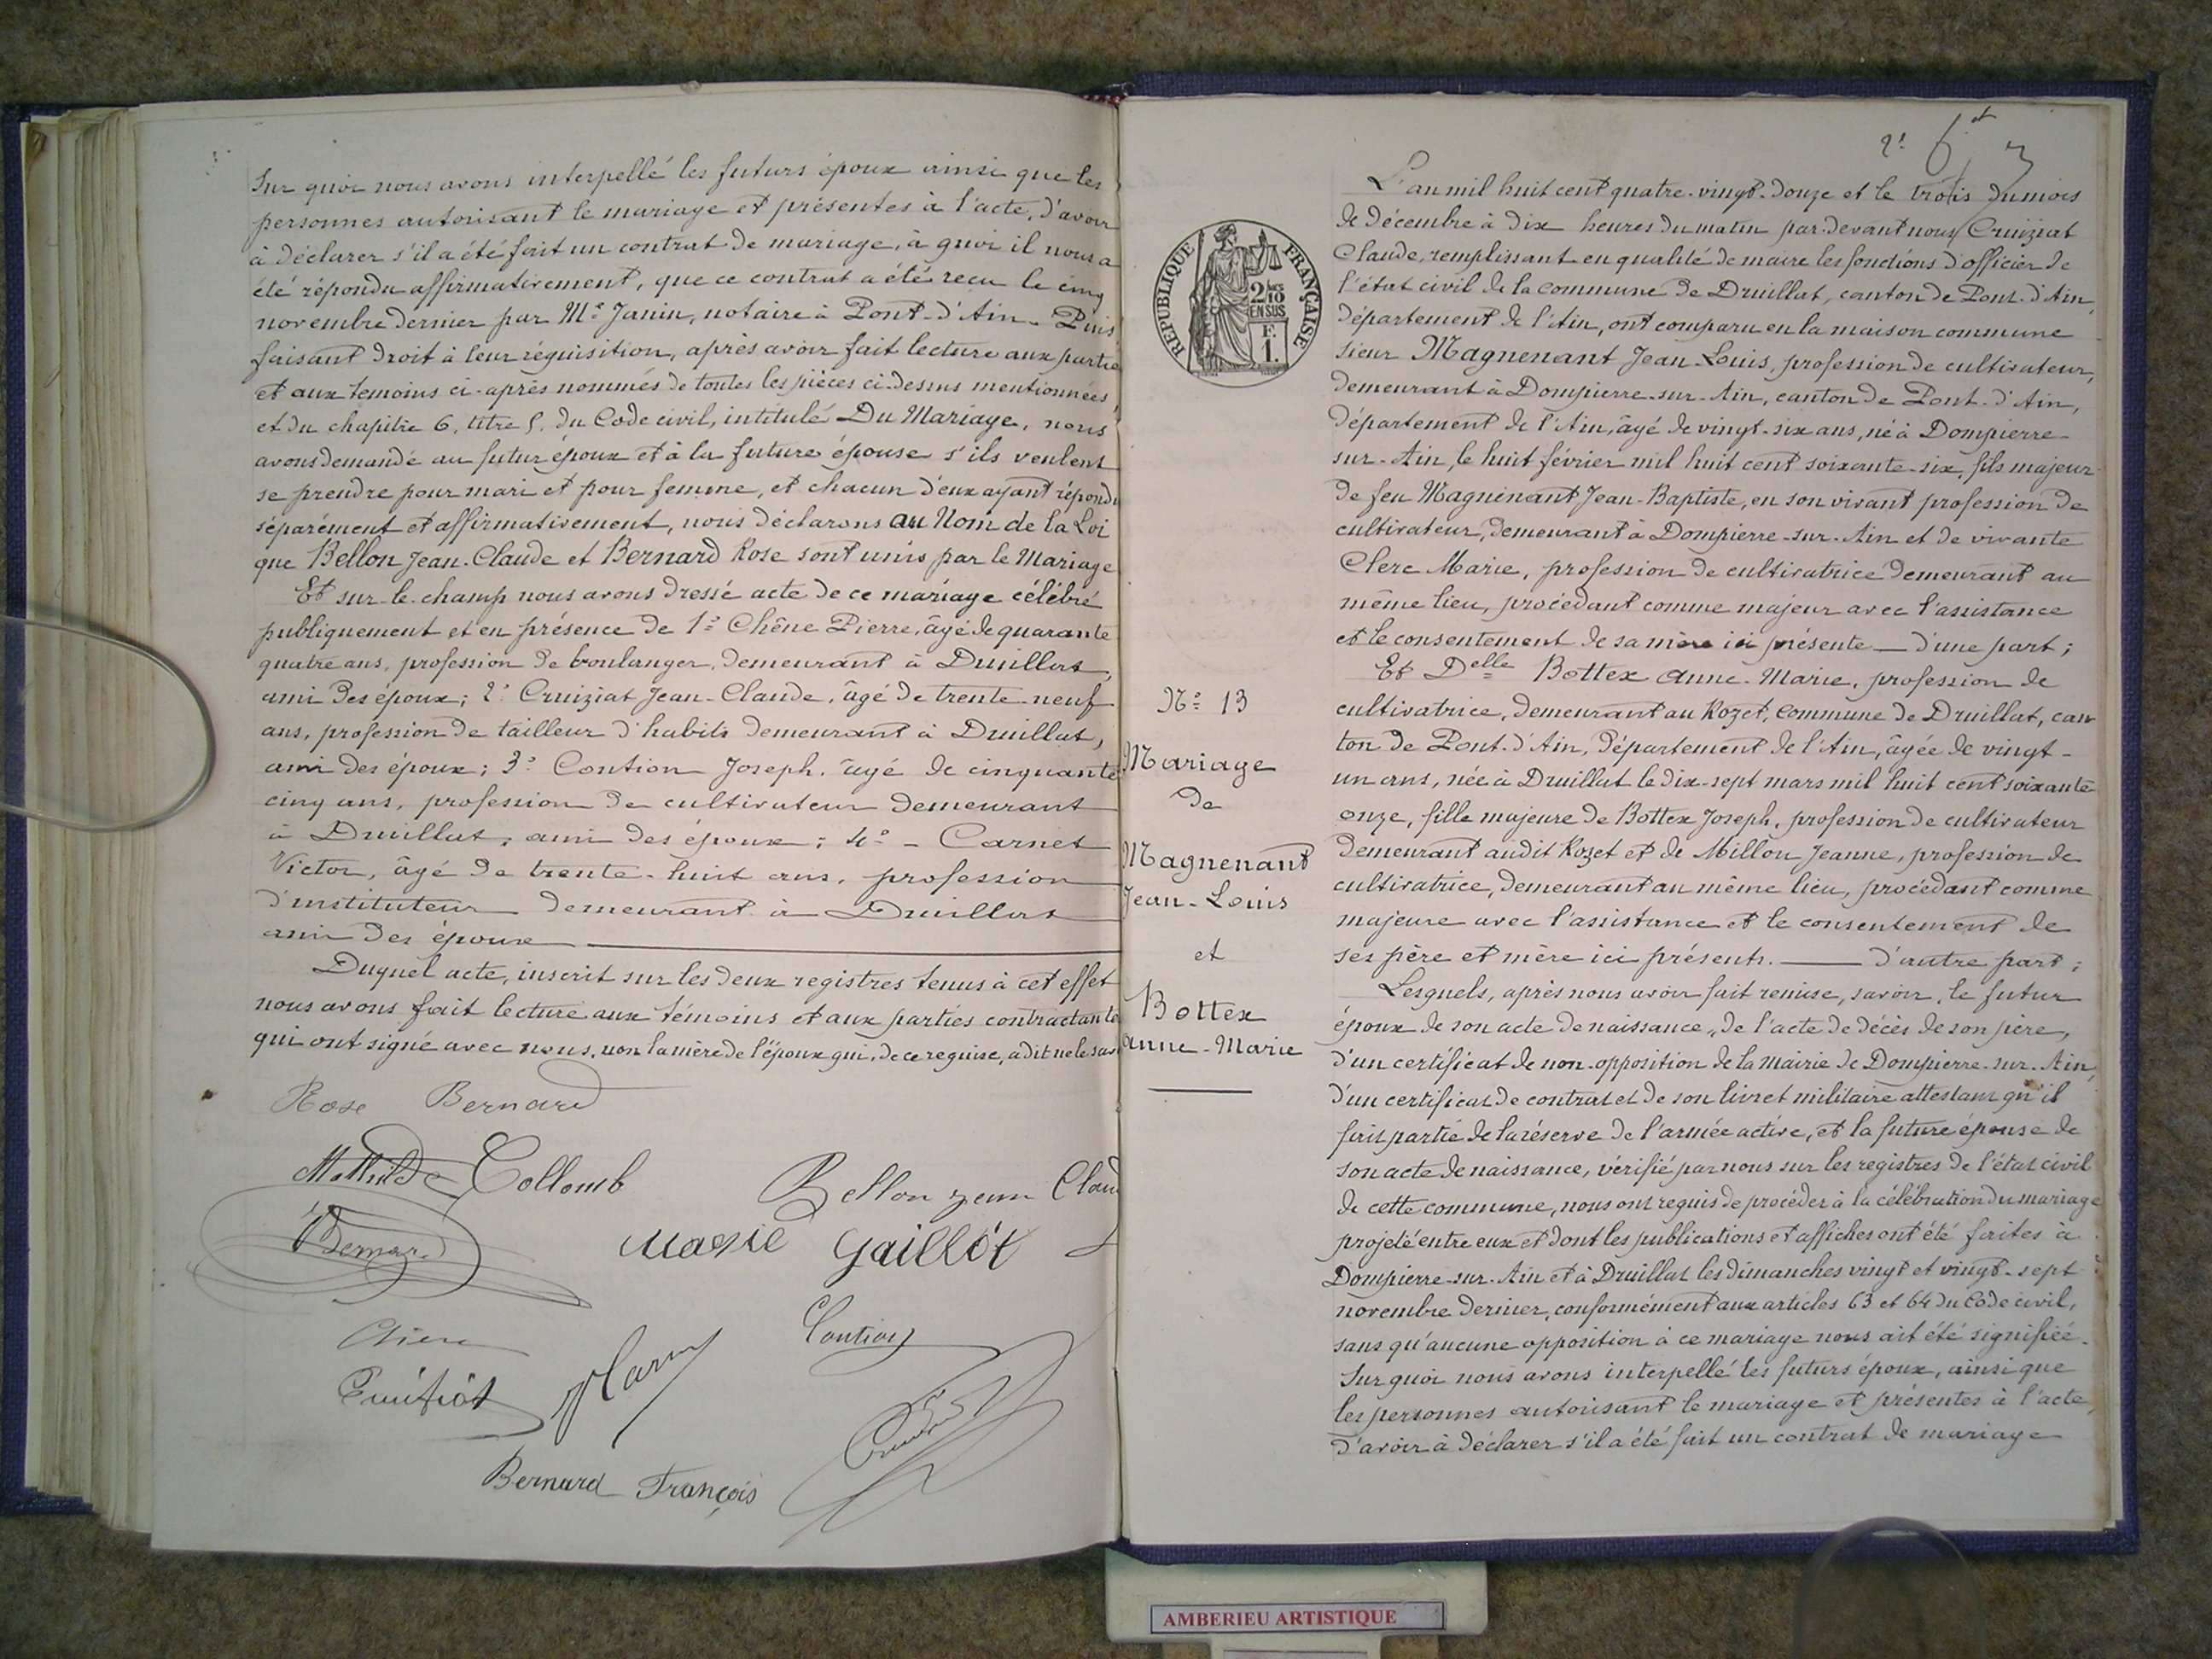 Sur quoi nous avons interpellé les futurs époux ainsi que les
personnes autorisant le mariage et présentes à l'acte, d'avoir
à déclarer s'il a été fait un contrat de mariage, à quoi il nous a
été répondu affirmativement, que ce contrat a été reçu le cinq
novembre dernier par Me Janin, notaire à Pont-d'Ain. Puis,
faisant droit à leur réquisition, après avoir fait lecture aux partie
et aux témoins ci-après nommés de toutes les pièces ci-dessus mentionnées,
et du chapitre 6, titre 5, du Code civil, intitulé Du Mariage, nous
avons demandé au futur époux et à la future épouse s'ils veulent
se prendre pour mari et pour femme, et chacun d'eux ayant répondu
séparément et affirmativement, nous déclarons au Nom de la Loi
que Bellon Jean-Claude et Bernard Rose sont unis par le Mariage
Et sur-le-champ nous avons dressé acte de ce mariage célébré
publiquement et en présence de 1º Chêne Pierre, âgé de quarante
quatre ans, profession de boulanger, demeurant à Druillat,
ami des époux; 2º Cruiziat Jean-Claude, âgé de trente-neuf
ans, profession de tailleur d'habits demeurant à Druillat,
ami des époux; 3º Contion Joseph, âgé de cinquante
cinq ans, profession de cultivateur demeurant
à Druillat, ami des époux; 4º - Carnet
Victor, âgé de trente-huit ans, profession
d'instituteur demeurant à Druillat
ami des époux
Duquel acte, inscrit sur les deux registres tenus à cet effet
nous avons fait lecture aux témoins et aux parties contractante
qui ont signé avec nous, non la mère de l'époux qui, de ce requise, a dit ne le sav
Rose Bernard
Mathilde Collomb
Bellon jean Claud
Bernard
Marie Gaillot
Chêne
Contion
Cruiziat
Bernard François
2f 6 et 3
L'an mil huit cent quatre-vingt-douze et le trois du mois
de décembre à dix heures du matin par-devant nous Cruiziat
Claude, remplissant en qualité de maire les fonctions d'officier de
l'état civil de la commune de Druillat, canton de Pont-d'Ain,
département de l'Ain, ont comparu en la maison commune
sieur Magnenant Jean-Louis, profession de cultivateur,
demeurant à Dompierre-sur-Ain, canton de Pont-d'Ain,
département de l'Ain, âgé de vingt-six ans, né à Dompierre-
sur-Ain, le huit février mil huit cent soixante-six, fils majeur
de feu Magnenant Jean-Baptiste, en son vivant profession de
cultivateur, demeurant à Dompierre-sur-Ain et de vivante
Clerc Marie, profession de cultivatrice demeurant au
même lieu, procédant comme majeur avec l'assistance
et le consentement de sa mère ici présente — d'une part;
Et Delle Bottex Anne-Marie, profession de
cultivatrice, demeurant au Rozet, commune de Druillat, can
ton de Pont-d'Ain, département de l'Ain, âgée de vingt-
un ans, née à Druillat le dix-sept mars mil huit cent soixante
onze, fille majeure de Bottex Joseph, profession de cultivateur
demeurant audit Rozet et de Millon Jeanne, profession de
cultivatrice, demeurant au même lieu, procédant comme
majeure avec l'assistance et le consentement de
ses père et mère ici présents. — d'autre part;
Lesquels, après nous avoir fait remise, savoir, le futur
époux de son acte de naissance, de l'acte de décès de son père,
d'un certificat de non-opposition de la Mairie de Dompierre-sur-Ain,
d'un certificat de contrat et de son livret militaire attestant qu'il
fait partie de la réserve de l'armée active, et la future épouse de
son acte de naissance, vérifié par nous sur les registres de l'état civil
de cette commune, nous ont requis de procéder à la célébration du mariage
projeté entre eux et dont les publications et affiches ont été faites à
Dompierre-sur-Ain et à Druillat les dimanches vingt et vingt-sept
novembre dernier, conformément aux articles 63 et 64 du Code civil,
sans qu'aucune opposition à ce mariage nous ait été signifiée.
Sur quoi nous avons interpellé les futurs époux, ainsi que
les personnes autorisant le mariage et présentes à l'acte,
d'avoir à déclarer s'il a été fait un contrat de mariage
RÉPUBLIQUE FRANÇAISE
2/10
EN SUS
F.
1.
Nº 13
Mariage
de
Magnenant
Jean-Louis
et
Bottex
Anne-Marie
AMBERIEU ARTISTIQUE